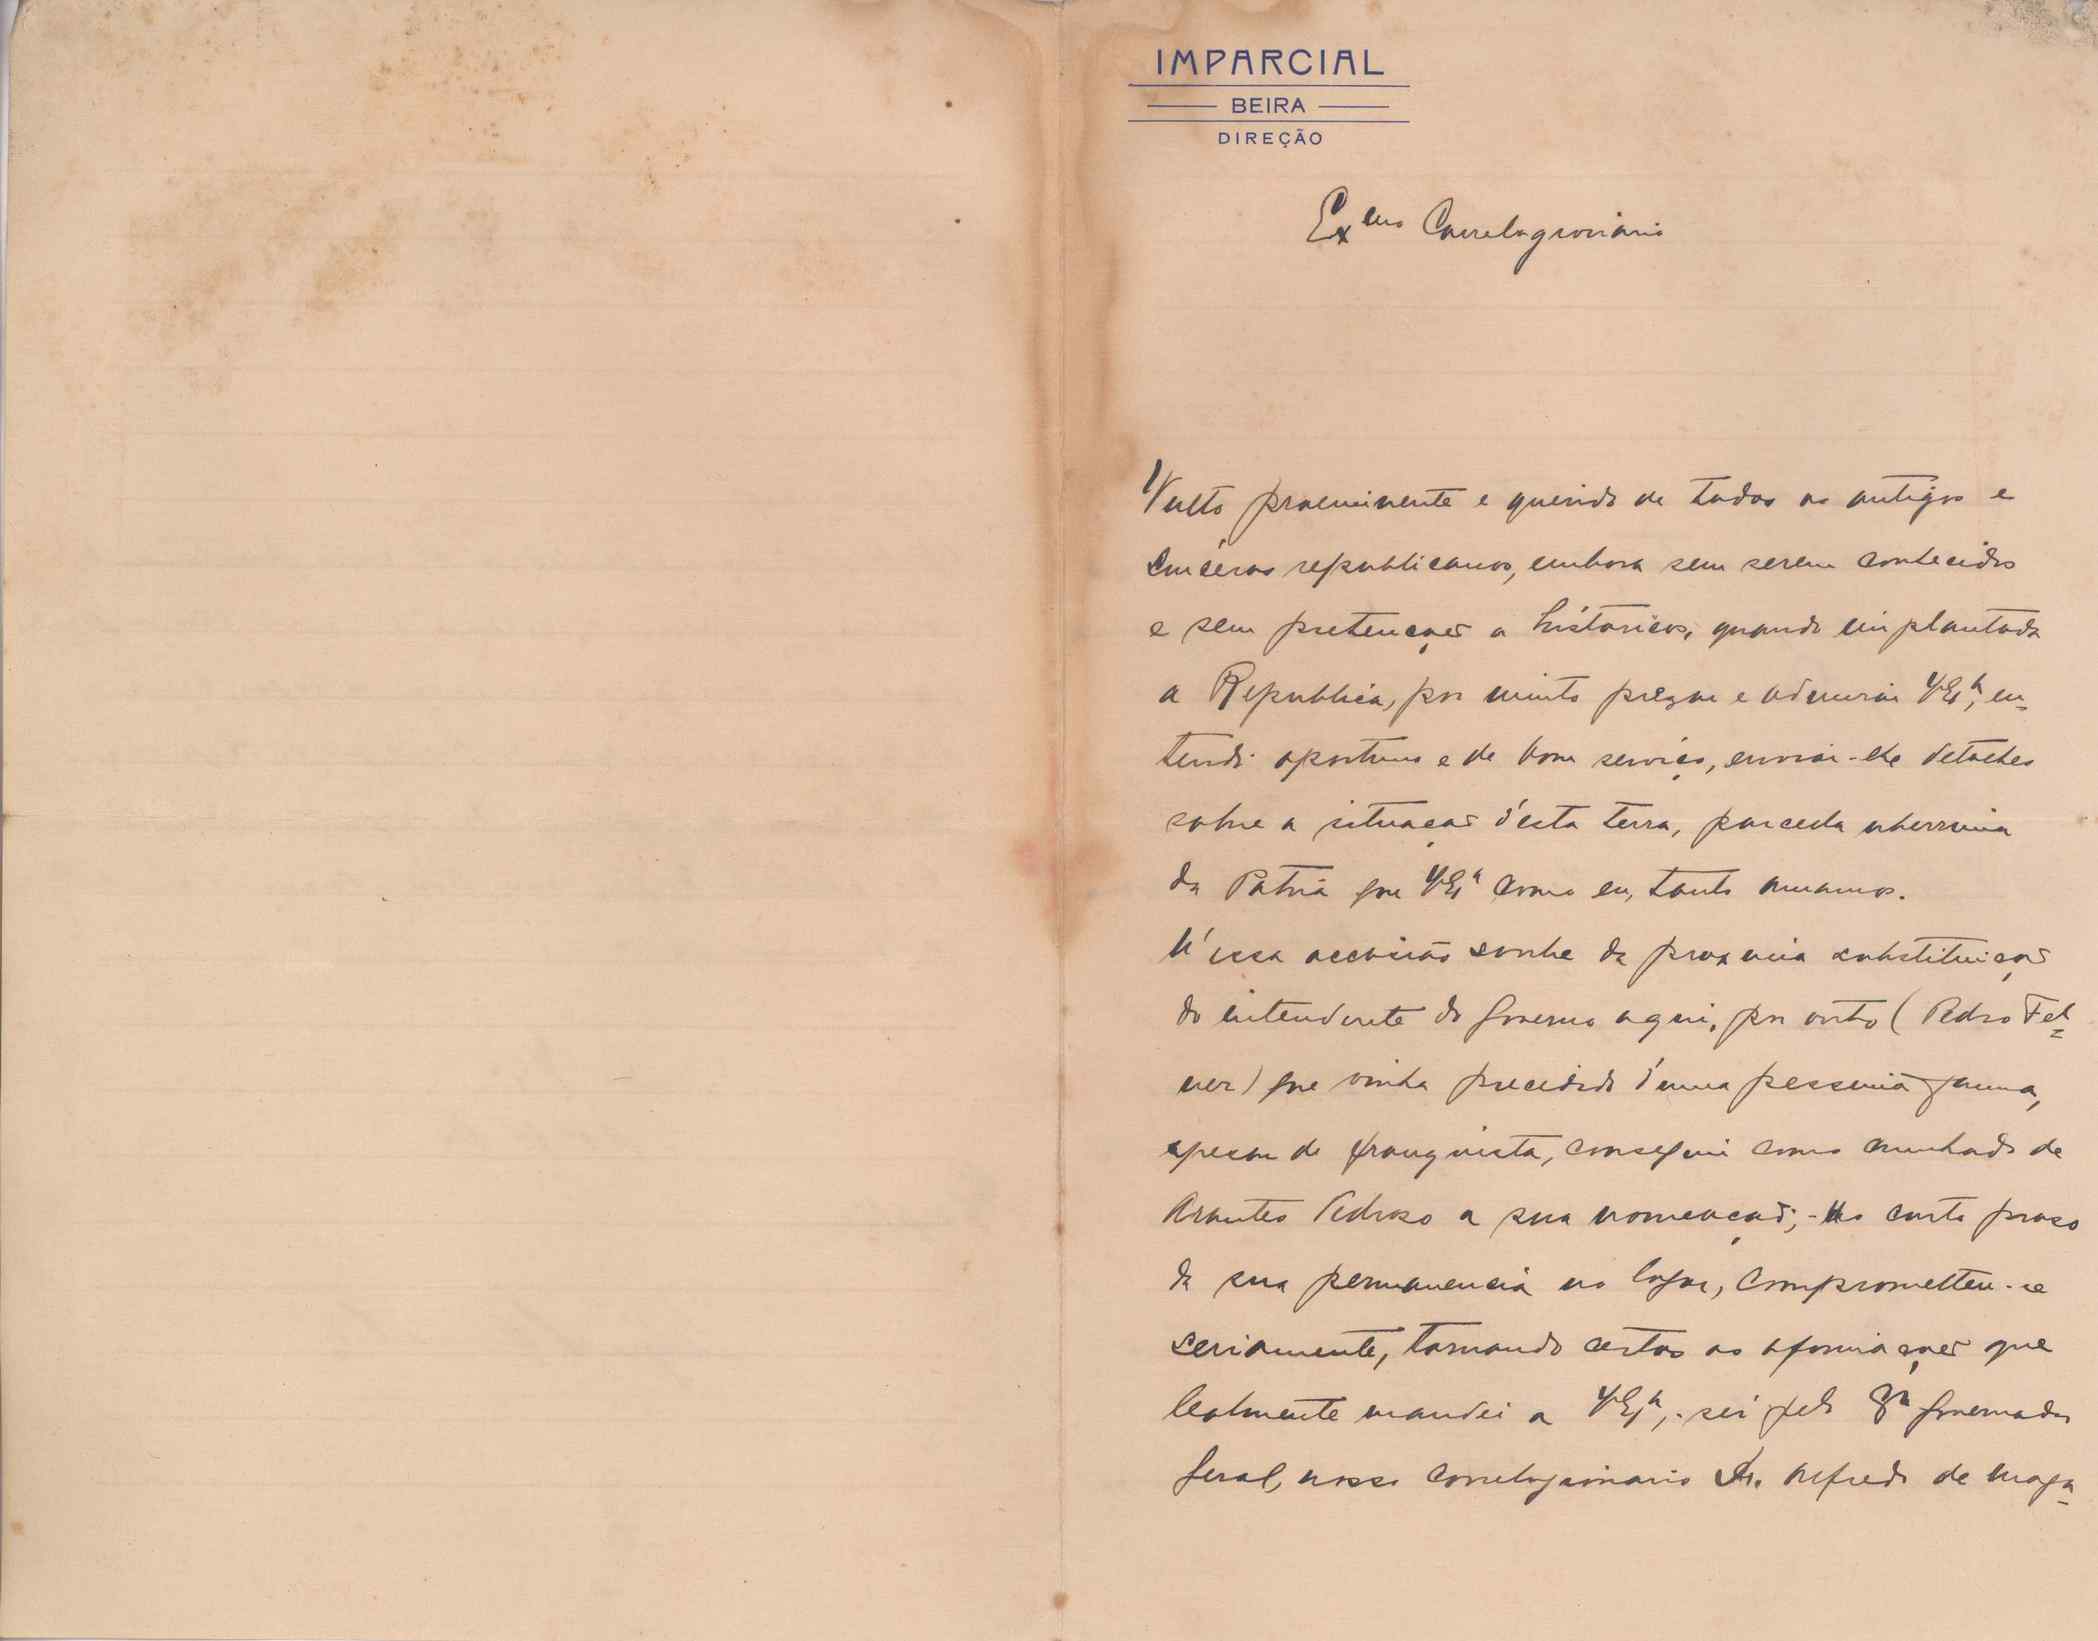 IMPARCIAL
BEIRA
DIREÇÃO
Exmo Correlegionario
Vulto proeminente e querido de todos os antigos e
sincéros republicanos, embora sem serem conhecidos
e sem pretenções a históricos, quando implantada
a Republica, por muito prezar e admirar V.Exª, en-
tendi oportuno e de bom serviço, enviar-lhe detalhes
sobre a situação d'esta terra, parcela uberrima
da Patria que V.Exª como eu, tanto amamos.
N'essa occasião soube da proxima substituição
do intendente do Governo aqui, por outro (Pedro Fel-
ner) que vinha precedido d'uma pessima fama,
apesar de franquista, conseguiu como cunhado de
Arantes Pedroso a sua nomeação; - No curto praso
da sua permanencia no logar, comprometteu-se
seriamente, tornando certas as afirmações que
lealmente mandei a V.Exª, sei pelo Governador
Geral, nosso correlegionario Dr. Alfredo de Maga-